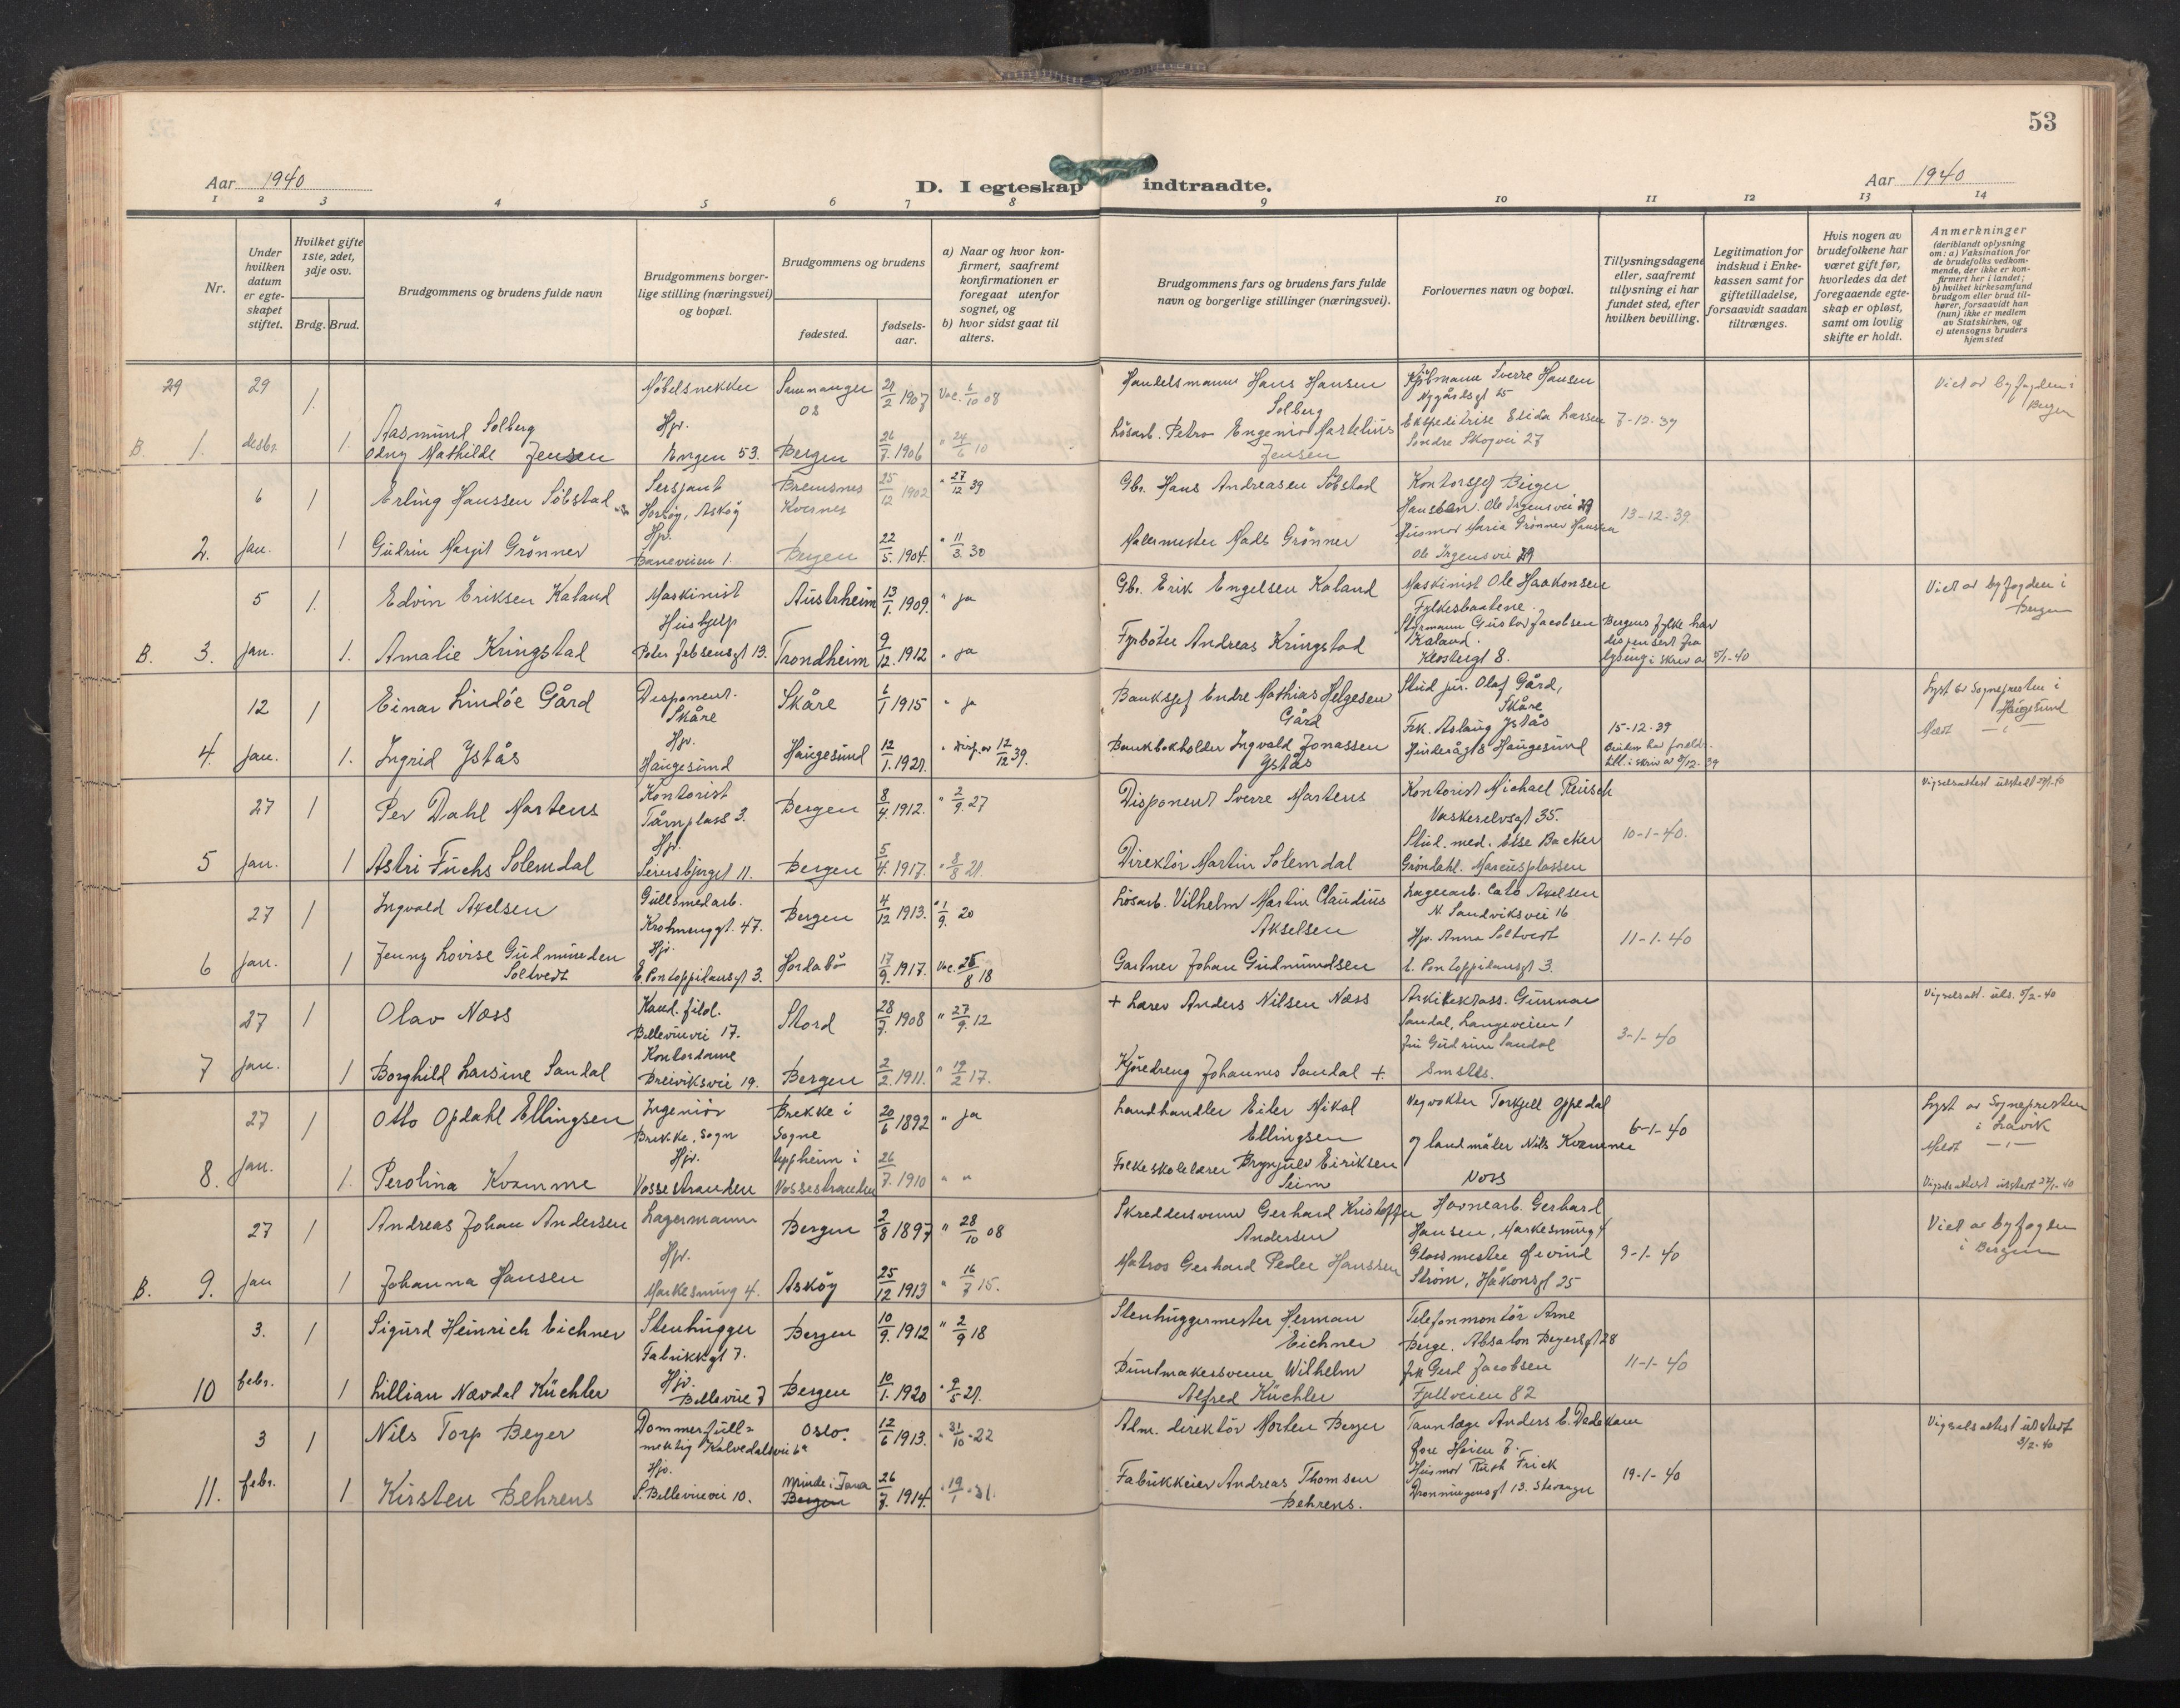 53
Aar 1940
D. I egteskap indtraadte.
Aar 1940
1 2 3 4 5 6 7 8 9 10 11 12 13 14
Nr.
Under hvilken datum er egteskapet stiftet.
Hvilket gifte 1ste, 2det, 3dje osv.
Brdg. Brud.
Brudgommens og brudens fulde navn
Brudgommens borgerlige stilling (næringsvei) og bopæl.
Brudgommens og brudens
fødested.
fødselsaar.
a) Naar og hvor konfirmert, saafremt konfirmationen er foregaat utenfor sognet, og
b) hvor sidst gaat til alters.
Brudgommens fars og brudens fars fulde navn og borgerlige stillinger (næringsvei).
Forlovernes navn og bopæl.
Tillysningsdagene eller, saafremt tillysning ei har fundet sted, efter hvilken bevilling.
Legitimation for indskud i Enkekassen samt for giftetilladelse, forsaavidt saadan tiltrænges.
Hvis nogen av brudefolkene har været gift før, hvorledes da det foregaaende egteskap er opløst, samt om lovlig skifte er holdt.
Anmerkninger
(deriblandt oplysning om: a) Vaksination for de brudefolks vedkommende, der ikke er konfirmert her i landet; b) hvilket kirkesamfund brudgom eller brud tilhører, forsaavidt han (hun) ikke er medlem av Statskirken, og c) utensogns bruders hjemsted
29 29 1. Møbelsnekker Samnanger 21/2 1907 Vac. 6/10 08 Handelsmann Hans Hansen Solberg Kjøbmann Sverre Hansen Nygårdsgt 15 Viet av byfogden i Bergen
B. 1. desbr. 1. Aasmund Solberg Odny Mathilde Jensen Hjv. Engen 53. Bergen 26/7 1906 " 24/6 10 Løsarb. Petro Engenio Martelius Jensen Ekspeditrise Elida Larsen Søndre Skogvei 27 7-12-39
6 1 Erling Hanssen Søbstad Sersjant Horsøy, Askøy Bremsnes Kvernes 25/12 1902 " 27/12 39 Gbr. Hans Andreasen Søbstad Kontorsjef Birger Hansen. Ole Irgensvei 29 13-12-39.
2. jan. 1 Gudrun Margit Grønner Hjv. Baneveien 1. Bergen 22/5. 1904. " 11/3. 30 Malermester Mads Grønner Husmor Maria Grønner Hansen Ole Irgensvei 29
5 1. Edvin Eriksen Kaland Maskinist Austrheim 13/1. 1909. " ja Gbr. Erik Engelsen Kaland Maskinist Ole Haakonsen Fylkesbaatene. Viet av byfogden i Bergen
B. 3. jan. 1. Amalie Kringstad Husbjelp Peter Jebsensgt 13. Trondheim 9/12. 1912 " ja Fyrbøter Andreas Kringstad Styrmann Gustav Jacobsen Kaland. Klostergt 8. Bergens fylke har dispensert fra lysing i skriv av 5/1-40
12 1 Einar Lindøe Gård Disponent. Skåre Skåre 6/1 1915 " ja Banksjef Endre Mathias Helgesen Gård Stud jur. Olaf Gård, Skåre Lyst av Sognepresten i Haugesund
4. jan. 1. Ingrid Ystås Hjv. Haugesund Haugesund 12/1. 1921. " 12/12 39. Bankbokholder Ingvald Jonassen Ystås Frk. Aslaug Ystås Haugesund 15-12-39
27 1 Per Dahl Martens Kontorist Tårnplass 3. Bergen 8/4. 1912. " 2/9. 27 Disponent Sverre Martens Kontorist Michael Reusch Vaskerelvsgt 35. 10-1-40. Vigselsattest utstedt 27/1-40
5 jan. 1 Astri Fuchs Solemdal Hjv. Bergen 5/4. 1917. " 8/8 21. Direktør Martin Solemdal Stud. med. Else Backer Grøndahl. Marcusplassen
27 1 Ingvald Axelsen Gullsmedarb. Krohnenggt. 47. Bergen 4/12 1913. " 1/9. 20 Løsarb. Vilhelm Martin Claudius Akselsen Lagerarb. Calo Axelsen N. Sandviksvei 16
6 jan. 1 Jenny Lovise Gudmunden Soltvedt Hjv. E. Pontoppidansgt 3. Hordabø 17/9. 1917. Vac. 25/8 18 Gartner Johan Gudmundsen Hjv. Anna Soltvedt E. Pontoppidansgt 3. 11-1-40
27 1 Olav Næss Kand. filol. Bellevuevei 17. Stord 28/7. 1908 " 27/9. 12 + Lærer Anders Nilsen Næss Arkitektass. Gunnar Sandal, Langeveien 1 3-1-40 Vigselsatt. uts. 5/2-40
7 jan. 1 Borghild Larsine Sandal Kontordame Breiviksvei 19. Bergen 2/2. 1911. " 19/2 17. Kjøredreng Johannes Sandal + Fru Gudrun Sandal Smsteds.
27 1 Otto Opdahl Ellingsen Ingeniør Brekke, Sogn Brekke i Sogne 20/6 1892 " ja Landhandler Eiler Mikal Ellingsen Vegvokter Torkjell Oppedal 6-1-40 Lyst av Sognepresten i Lavik
8. jan. 1. Perolina Kvamme Hjv. Vossestranden Uppheim i Vossestranden 26/7. 1910 " " Folkeskolelærer Brynjulv Eiriksen Seim og landmåler Nils Kvamme Voss Vigselsattest utstedt 27/1-40
27 1 Andreas Johan Andersen Lagermann Bergen 2/8 1897 " 28/10 08 Skreddersvenn Gerhard Kristoffer Andersen Havnearb. Gerhard Hansen, Markesmug 4 Viet av byfogden i Bergen
B. 9. jan 1 Johanna Hansen Hjv. Markesmug 4. Askøy 25/12 1913 " 16/7 15. Matros Gerhard Peder Hanssen Glassmester Øivind Strøm, Håkonsgt 25 9-1-40
3. 1 Sigurd Heinrich Eichner Stenhugger Fabrikkgt 7. Bergen 10/9. 1912 " 2/9 18 Stenhuggermester Herman Eichner Telefonmontør Arne Berge. Absalon Beyersgt 28
10 febr. 1 Lillian Nævdal Küchler Hjv. Bellevue 7 Bergen 10/1. 1920 " 9/5 21. Buntmakersvenn Wilhelm Alfred Küchler Frk Gerd Jacobsen Fjellveien 82 11-1-40
3 1 Nils Torp Beyer Dommerfullmektig Kalvedalsvei 6a Oslo. 12/6 1913. " 31/10-22 Adm. direktør Morten Beyer Tannlæge Anders C. Dedekam Øvre 3/2-40 Vigselsattest utstedt
11. febr. 1 Kirsten Behrens Hjv. S. Bellevuevei 10. Minde i Fana Bergen 26/7. 1914. " 19/1-31. Fabrikkeier Andreas Thomsen Behrens. Husmor Ruth Frick Dronningensgt 13. Stavanger 19-1-40